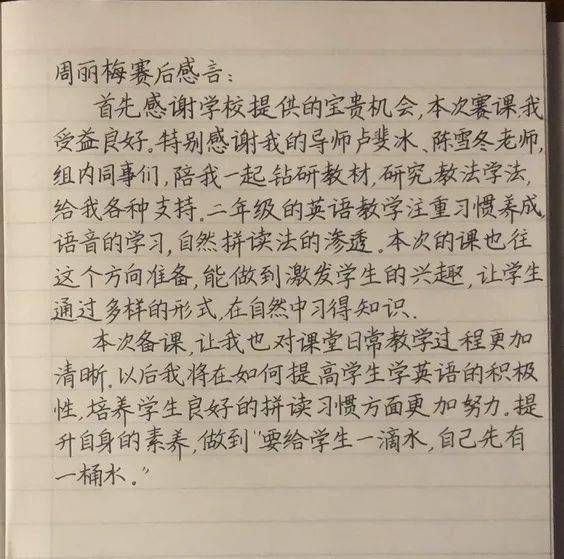 周丽梅赛后感言：
首先感谢学校提供的宝贵机会,本次赛课,我
受益良好。特别感谢我的导师卢斐冰、陈雪冬老师,
组内同事们,陪我一起钻研教材,研究教法学法,
给我各种支持。二年级的英语教学注重习惯养成,
语音的学习,自然拼读法的渗透。本次的课也往
这个方向准备,能做到激发学生的兴趣,让学生
通过多样的形式,在自然中习得知识.
本次备课,让我也对课堂日常教学过程更加
清晰。以后我将在如何提高学生学英语的积极
性,培养学生良好的拼读习惯方面更加努力。提
升自身的素养,做到“要给学生一滴水,自己先有
一桶水。”